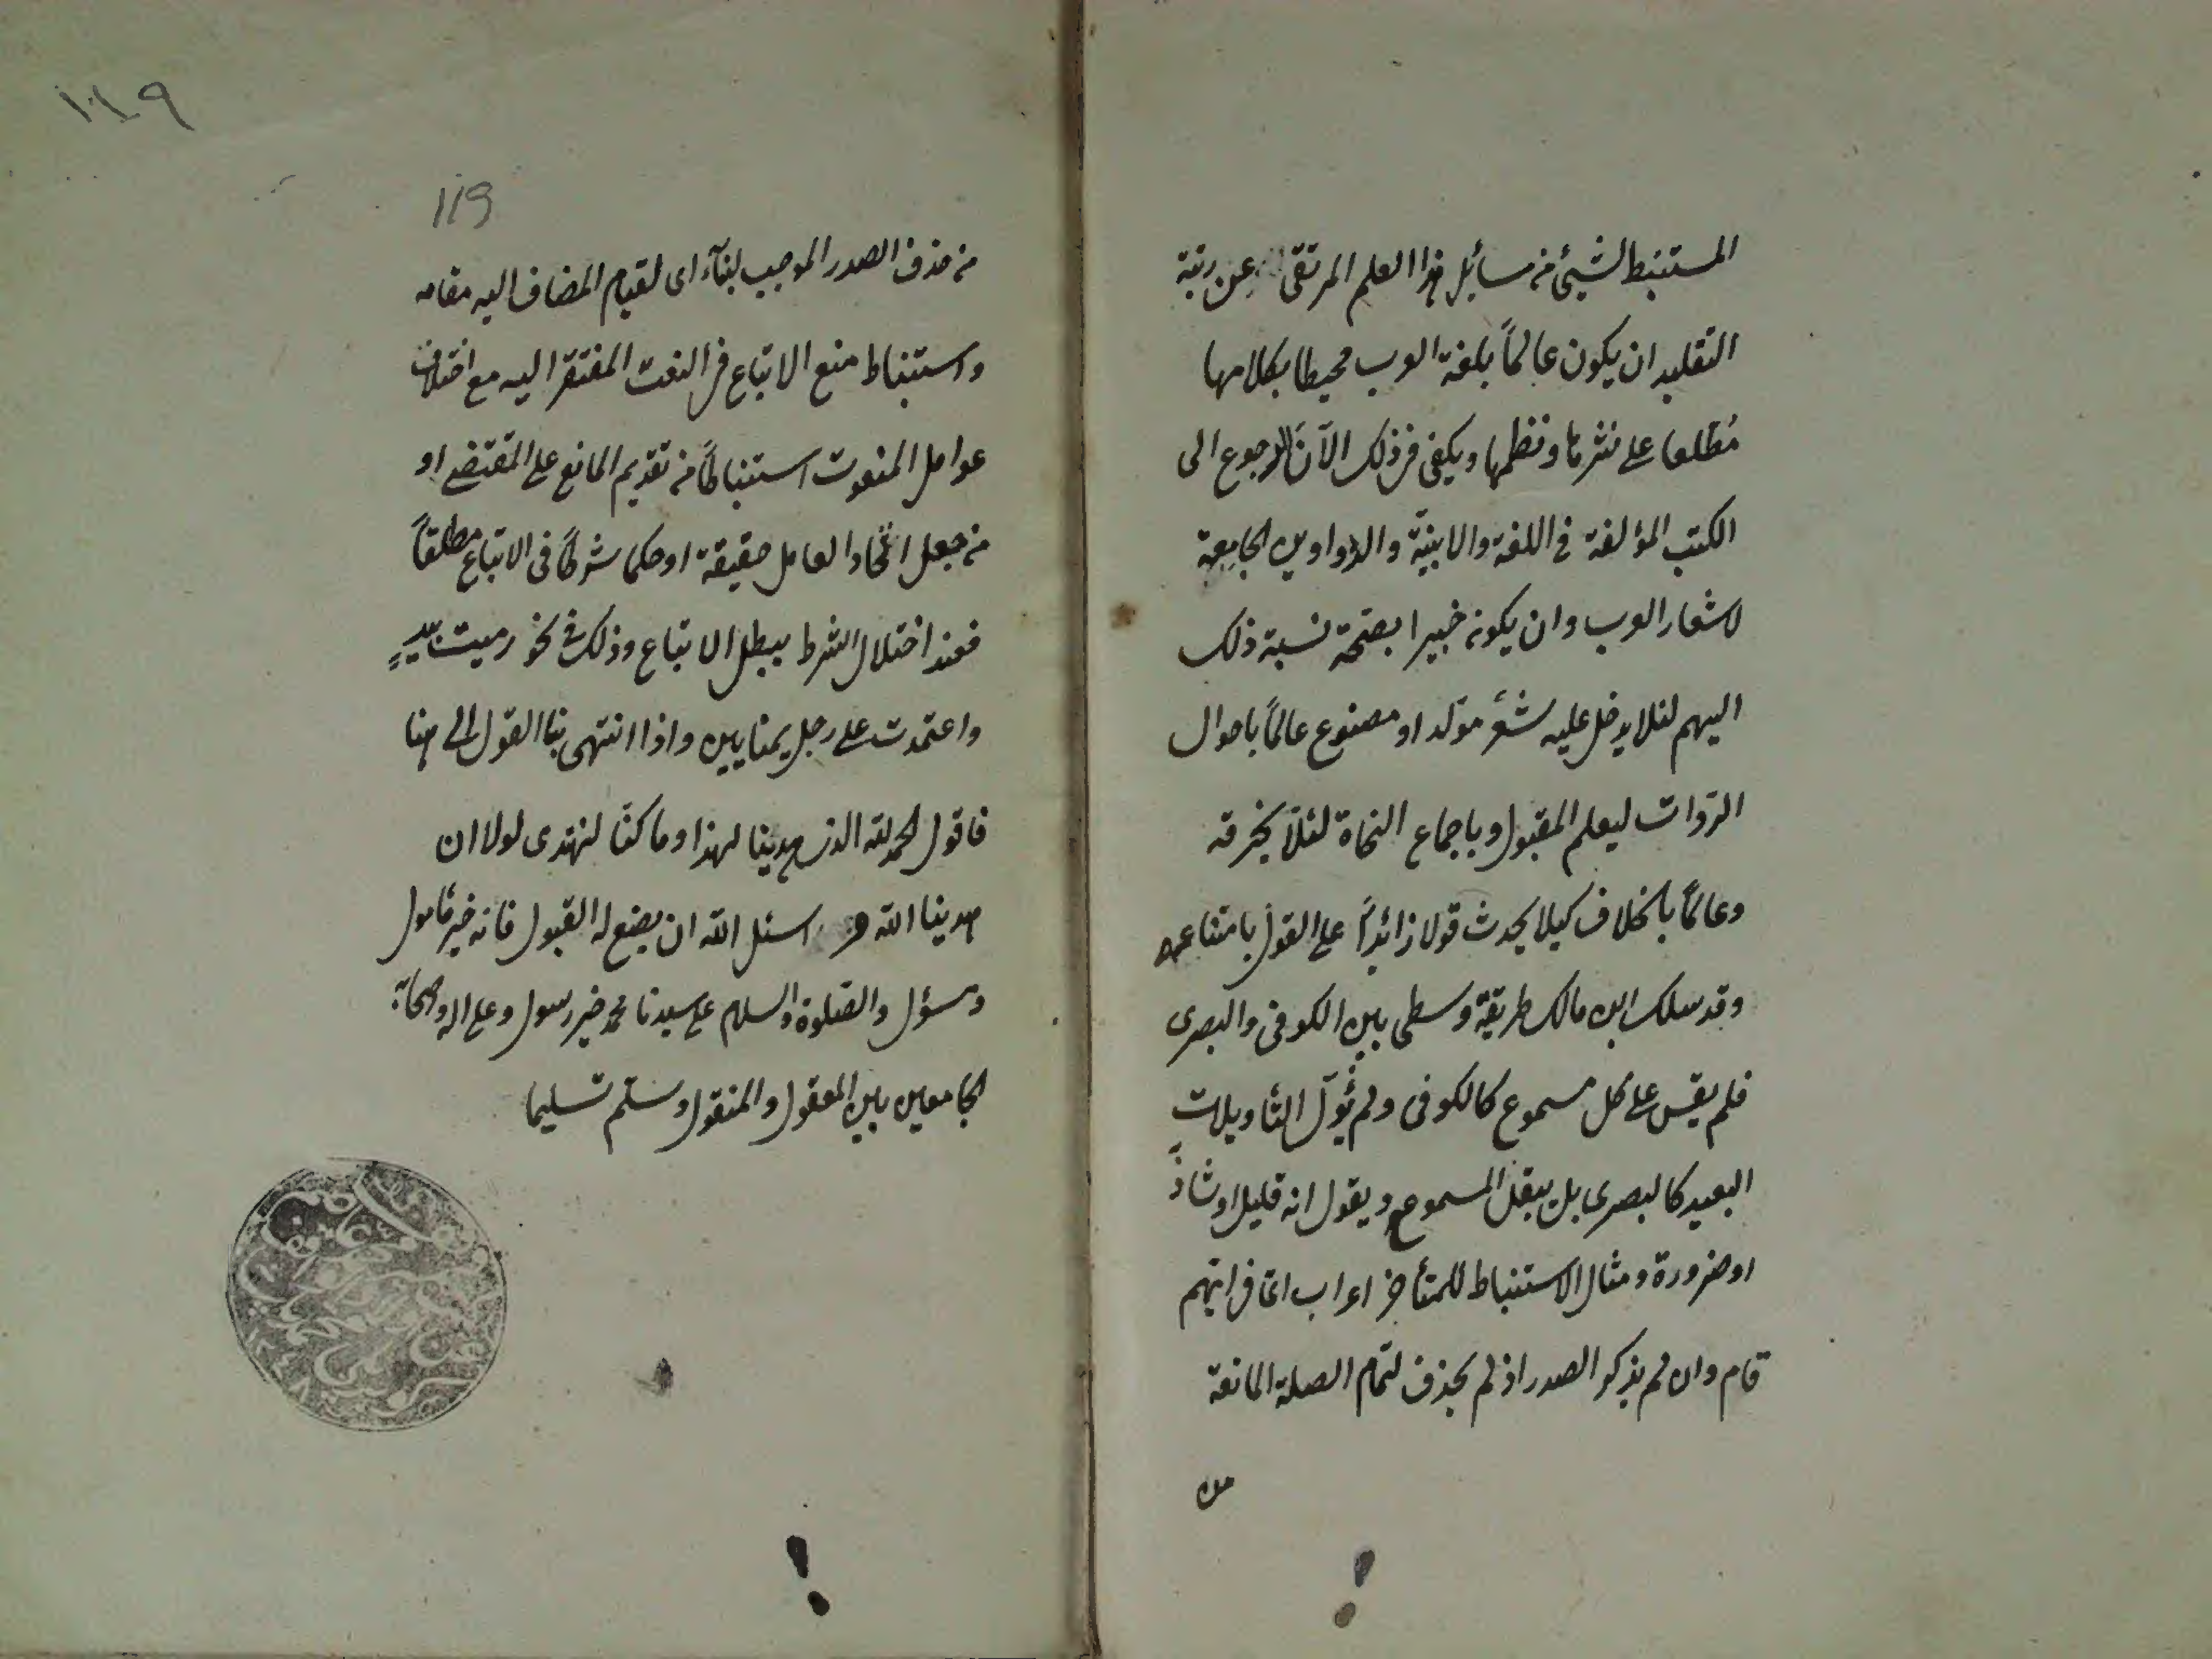 المستنبط لشيئ من مسائل هذا العلم المرتقى عن رتبة
التقليد ان يكون عالماً بلغة العرب محيطا بكلامها
مُطلعا على نثرها ونظمها ويكفى فى ذلك الآن الرجوع الى
الكتب المؤلفة فى اللغة والابنيّة والدواوين الجامعة
لاشعار العرب وان يكون خبيرا بصحّة نسبة ذلك
اليهم لئلا يدخل عليه شعر مولّد او مصنوع عالماً باحوال
الرّوات ليعلم المقبول وباجماع النحاة لئلا يخرقه
وعالماً بالخلاف كيلا يحدث قولا زائداً على القول بامتناعه
وقد سلك ابن مالك طريقة وسطى بين الكوفى والبصرى
فلم يقس على كل مسموع كالكوفى ولم يُؤل التأويلات
البعيد كالبصرى بل يبقل المسموع ويقول انه قليل او شاذّ
او ضرورة ومثال الاستنباط للمتأخر اعراب اىّ فى ايهم
قام وان لم يذكر الصدر اذ لم يحذف لتمام الصلة المانعة
من
١١٩
119
من حذف الصدر الموجب لبنآء اى لقيام المضاف اليه مقامه
واستنباط منع الاتباع فى النعت المفتقر اليه مع اختلاف
عوامل المنعوت استنباطاً من تقديم المانع على المقتضى او
من جعل اتّحاد العامل حقيقة او حكما شرطاً فى الاتباع مطلقاً
فعند اختلال الشرط يبطل الاتباع وذلك فى نحو رميت بيدٍ
واعتمدت على رجل يمنايين واذا انتهى بنا القول الى هنا
فاقول الحمد لله الذى هدينا لهذا وما كنا لنهتدى لولا ان
هدينا الله و اسئل الله ان يضع له القبول فانه خير مأمول
ومسؤل والصّلوة والسلام على سيدنا محمد خير رسول وعلى اله وصحابة
الجامعين بين المعقول والمنقول وسلّم تسليما